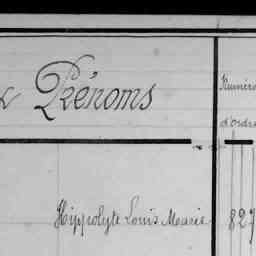 & Prénoms
Numéro
d'ordre
Hippolyte Louis Marie
827